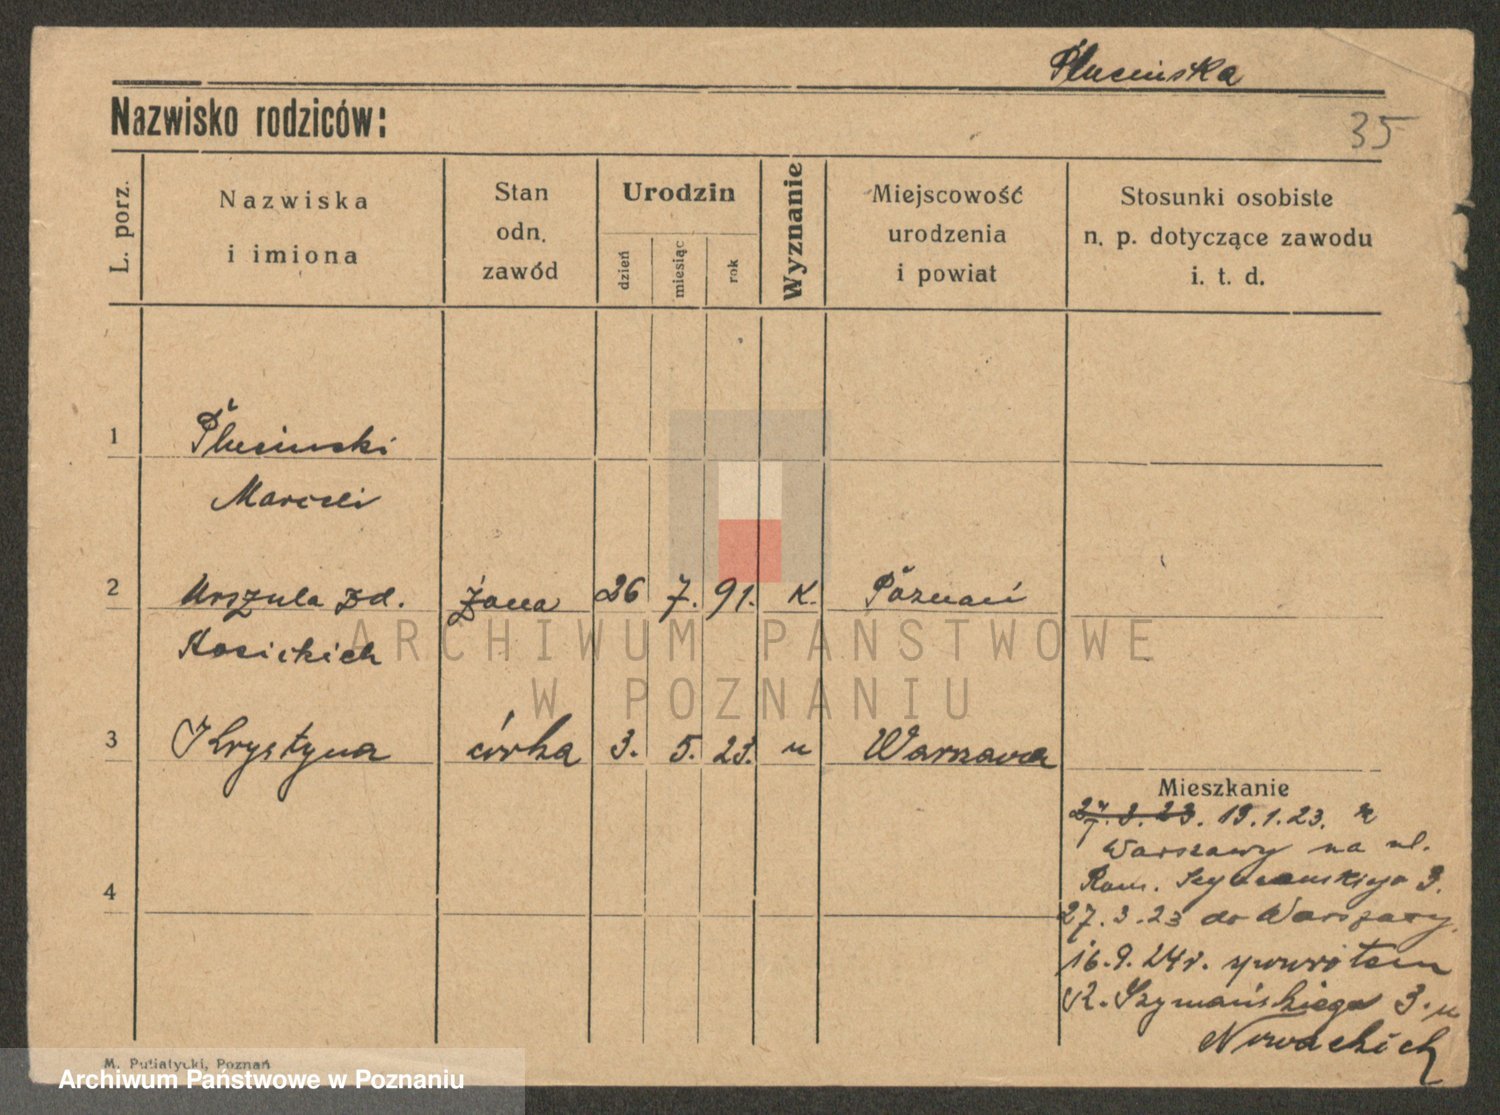 Plucińska
Nazwisko rodziców:
35
L. porz.
Nazwiska
i imiona
Stan
odn.
zawód
Urodzin
dzień
miesiąc
rok
Wyznanie
Miejscowość
urodzenia
i powiat
Stosunki osobiste
n. p. dotyczące zawodu
i. t. d.
1
Pluciński
Marceli
2 Urszula zd. żona 26 7. 91. K. Poznań
Kosickich
3 Krystyna córka 3. 5. 23. " Warszawa
Mieszkanie
27. 3. 23. 19.1.23. z
Warszawy na ul.
Rom. Szymańskiego 3.
4
27.3.23 do Warszawy.
16.9.24r. spowrotem
R. Szymańskiego 3. u
Nowackich
M. Putiatycki, Poznań
ARCHIWUM PAŃSTWOWE
W POZNANIU
Archiwum Państwowe w Poznaniu